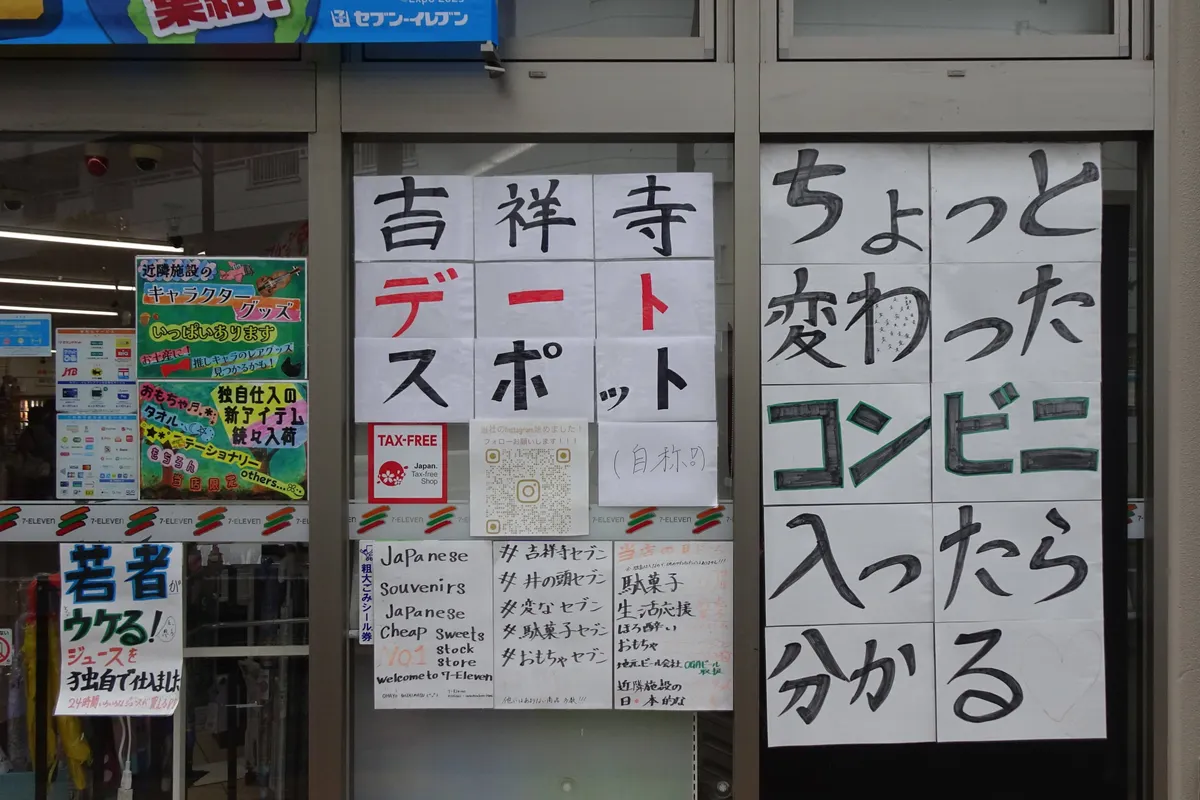 集結!
セブン-イレブン
近隣施設の
キャラクター
グッズ
いっぱいあります
お土産に!
推しキャラのレアグッズ
見つかるかも!
おもちゃ
タオル
ステーショナリー
もちろん
当店限定
others...
独自仕入の
新アイテム
続々入荷
JTB
7-ELEVEN
若者が
ウケる!
ジュースを
独自で仕入ました
吉祥寺
デート
スポット
(自称!!)
TAX-FREE
Japan.
Tax-free
Shop
当社のInstagram始めました!
フォローお願いします!!!
7-ELEVEN 7-ELEVEN 7-ELEVEN
粗大ごみシール券
Japanese
Souvirs
Japanese
Cheap sweets
NO1 stock
store
welcome to 7-Eleven
#吉祥寺セブン
#井の頭セブン
#変なセブン
#駄菓子セブン
#おもちゃセブン
駄菓子
生活応援
ほろ酔い
おもちゃ
地元ビール会社
近隣施設の
ちょっと
変わった
コンビニ
入ったら
分かる